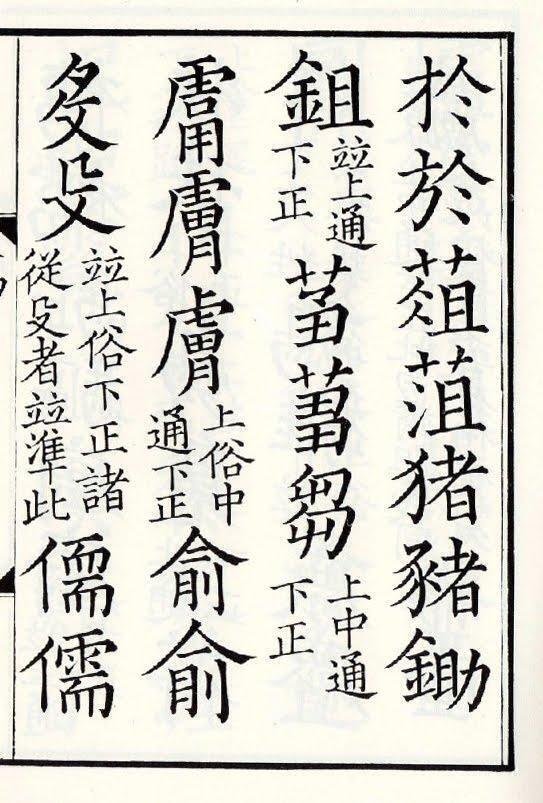 扵於葅菹猪豬鋤
鉏竝上通下正芻上中通下正
膚膚上俗中通下正俞俞
殳竝上俗下正諸從殳者竝準此儒儒